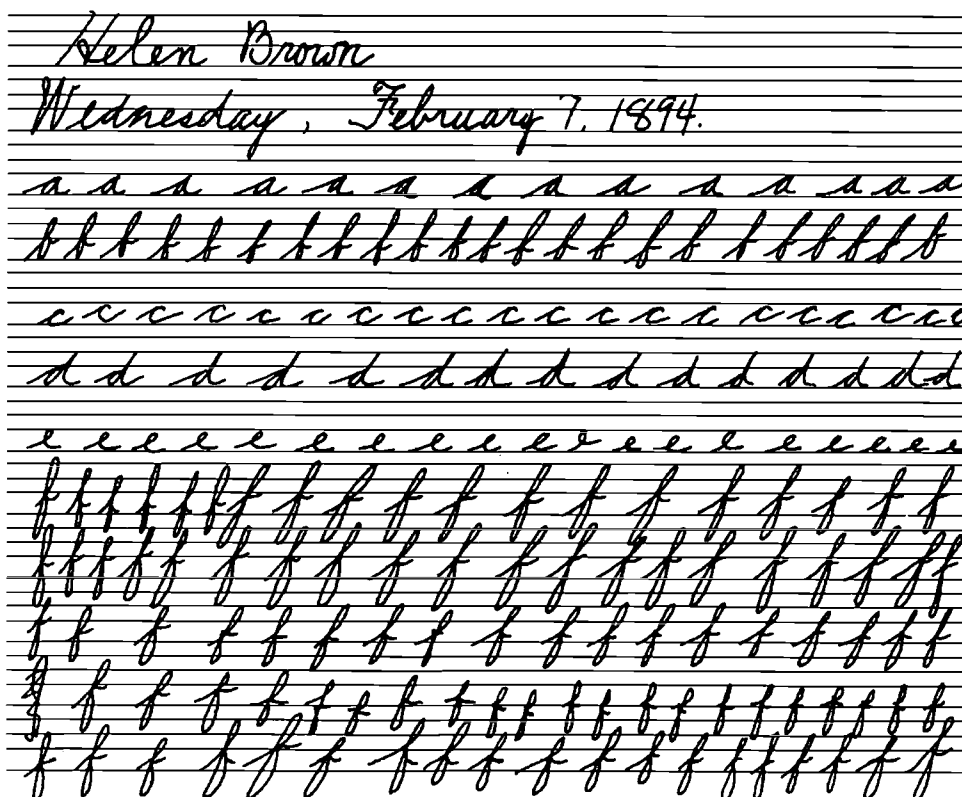 Helen Brown
Wednesday, February 7, 1894.
a a a a a a a a a a a a a a
b b b b b b b b b b b b b b b b b b b b b b b
c c c c c c c c c c c c c c c c c c c c
d d d d d d d d d d d d d d d
e e e e e e e e e e e e e e e e e e e
f f f f f f f f f f f f f f f f f f f
f f f f f f f f f f f f f f f f f f f f
f f f f f f f f f f f f f f f f f f
f f f f f f f f f f f f f f f f f f f f f f
f f f f f f f f f f f f f f f f f f f